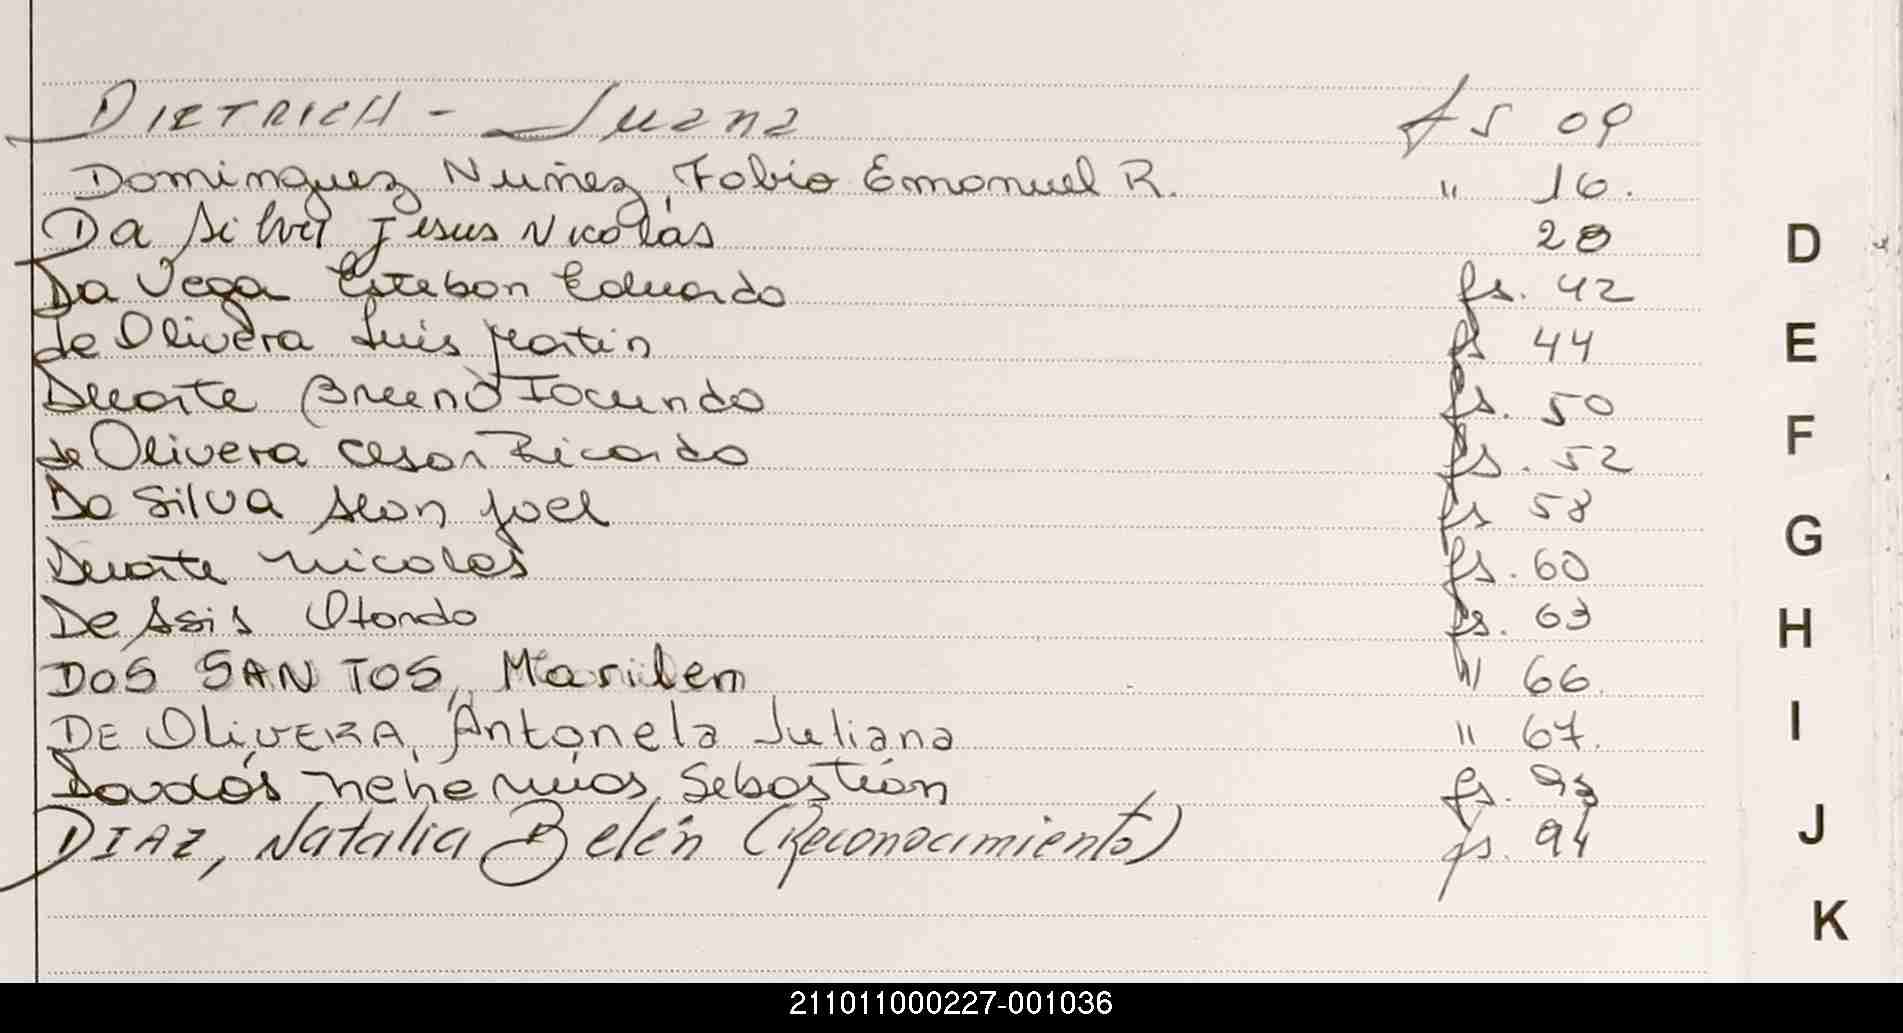 DIETRICH - Juana fs 09
Dominguez Nuñez, Fabio Emanuel R. " 16.
Da Silva Jesus Nicolás 20
Da Vega Esteban Eduardo fs. 42
de Olivera Luis Martin fs 44
Duarte Bruno Facundo fs. 50
de Olivera Cesar Ricardo fs. 52
Da Silva Alan Joel fs 58
Duarte Nicolas fs. 60
De Asis fs. 63
DOS SANTOS, Marilem " 66.
DE OliVERA, Antonela Juliana " 67.
Sebastián fs. 93
DIAZ, Natalia Belén (Reconocimiento) fs. 94
D
E
F
G
H
I
J
K
211011000227-001036